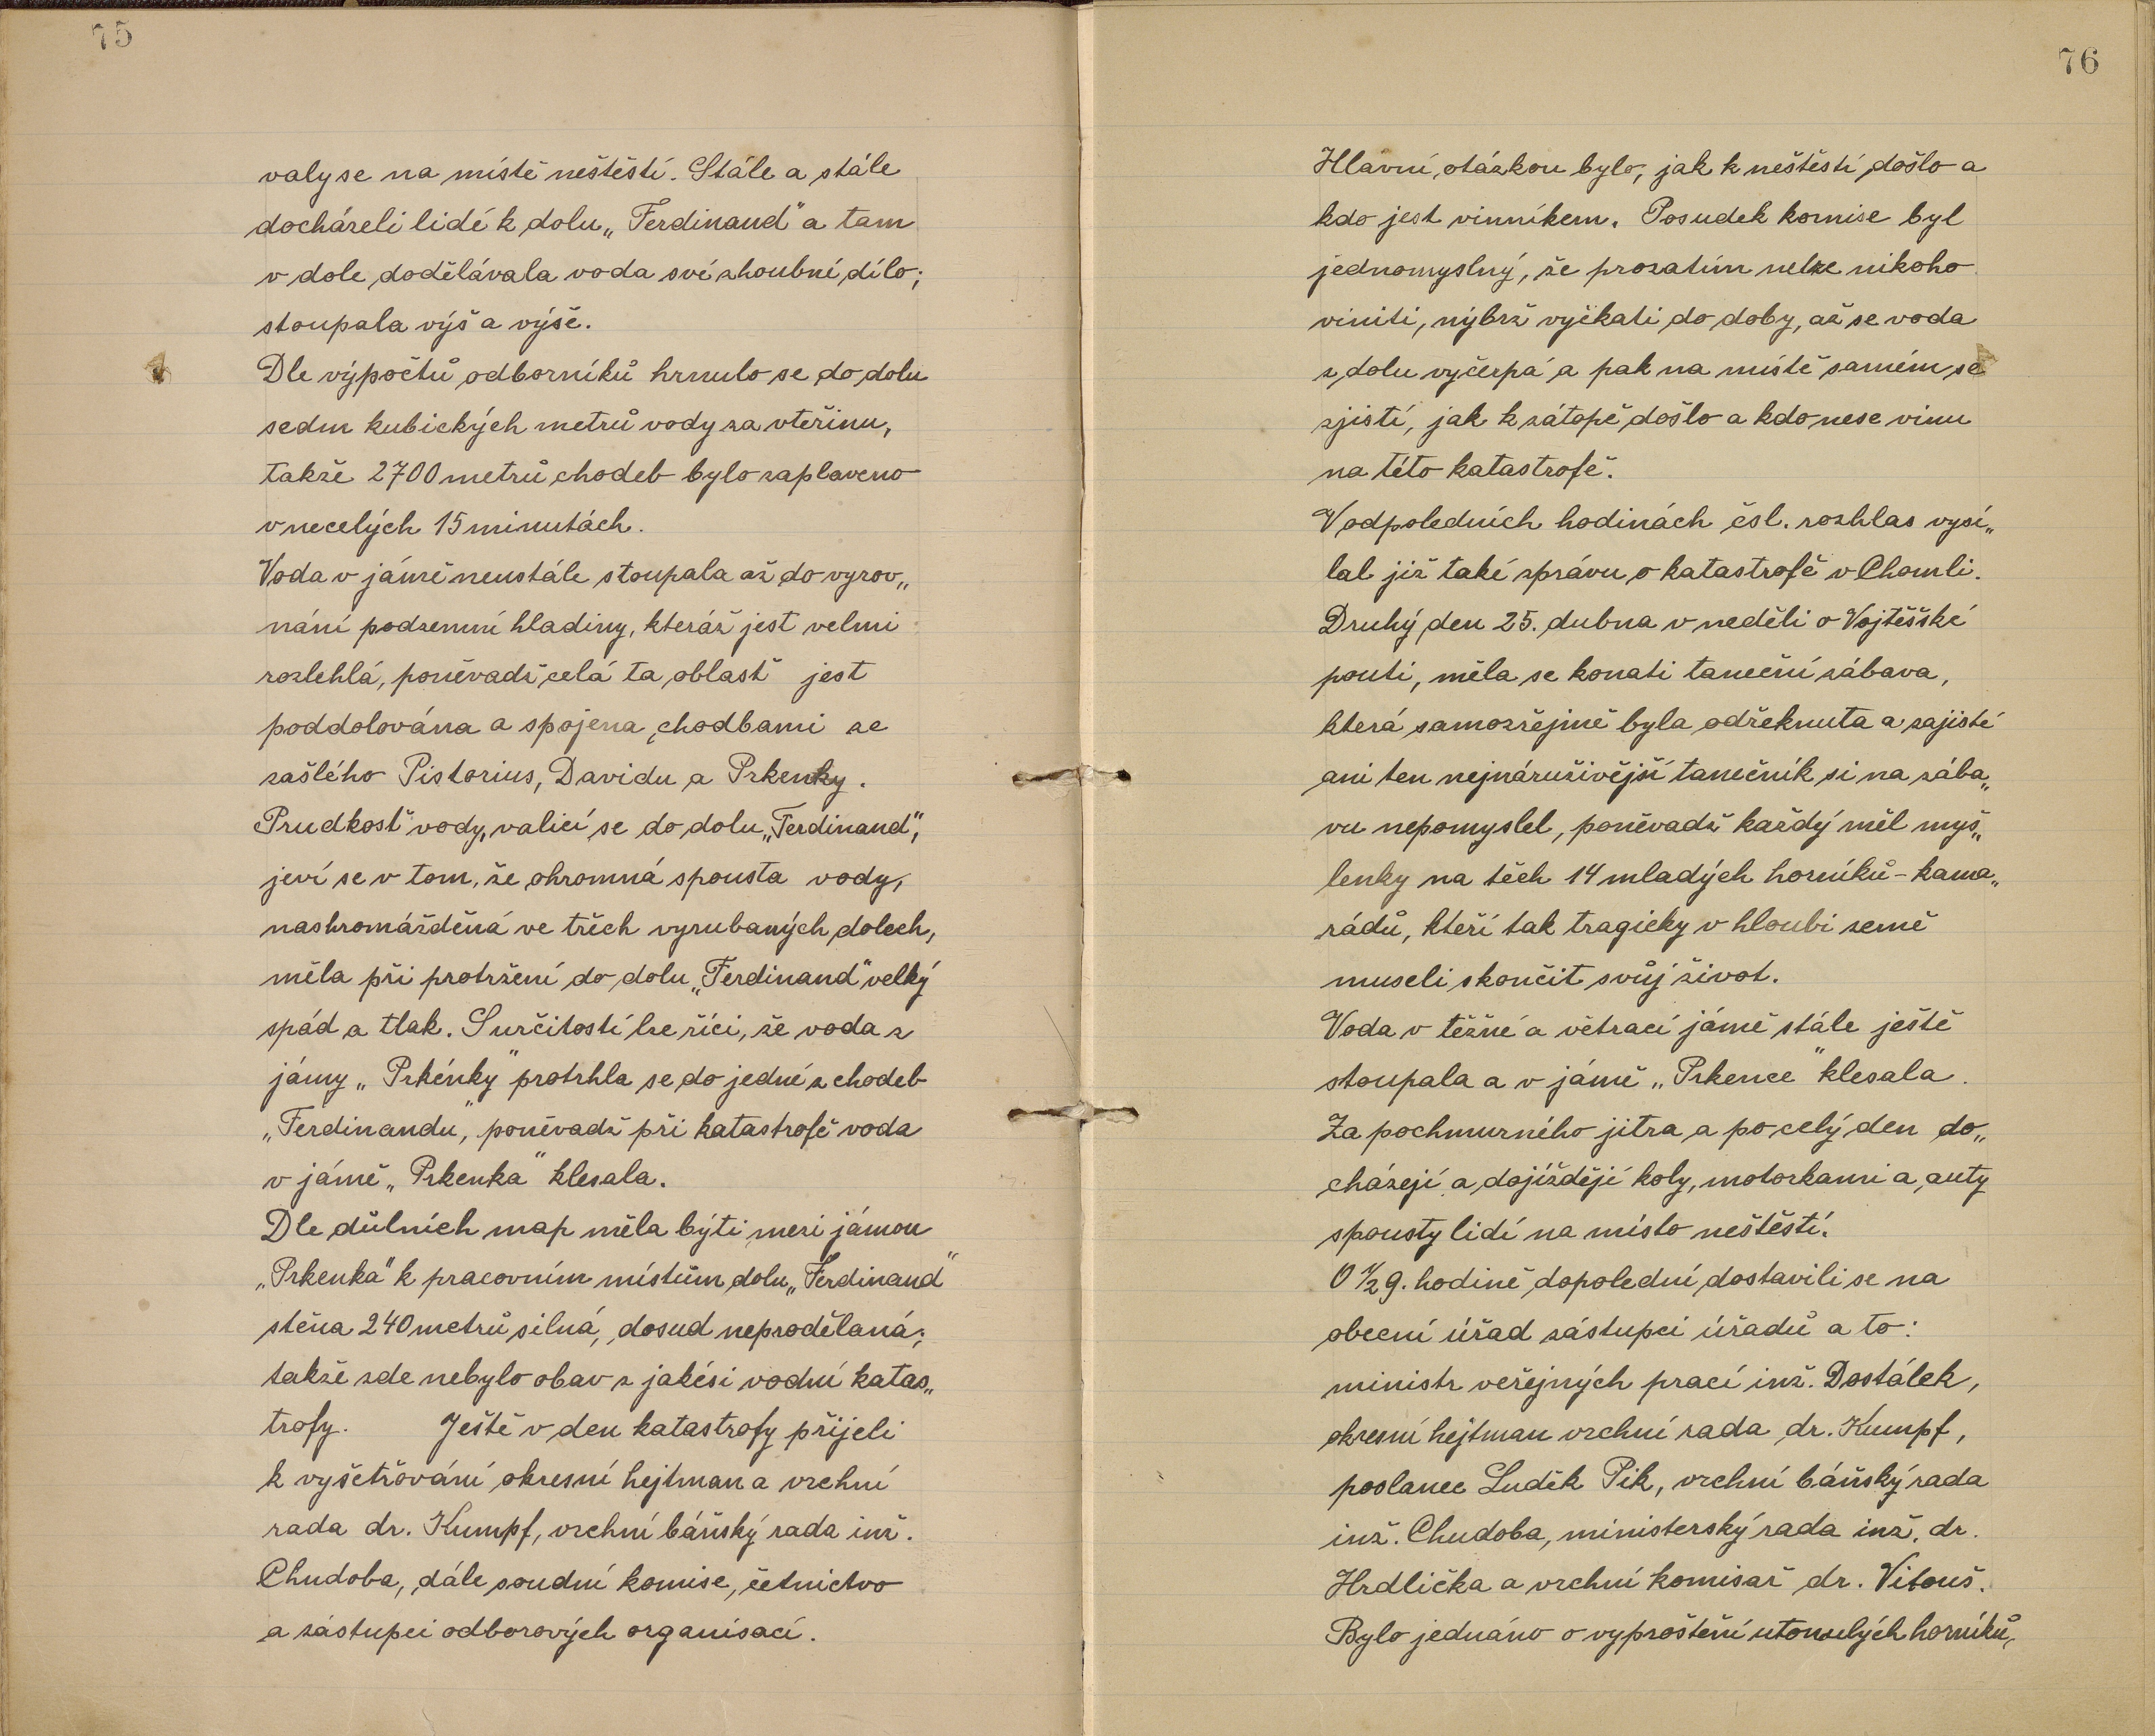 75
valy se na místě neštěstí. Stále a stále
docházeli lidé k dolu „Ferdinand" a tam
v dole dodělávala voda své zhoubné dílo;
stoupala výš a výše.
Dle výpočtů odborníků hrnulo se do dolu
sedm kubických metrů vody za vteřinu,
takže 2700 metrů chodeb bylo zaplaveno
v necelých 15 minutách.
Voda v jámě neustále stoupala až do vyrov„
nání podzemní hladiny, kteráž jest velmi
rozlehlá, poněvadž celá ta oblast jest
poddolována a spojena chodbami ze
zašlého Pistorius, Davidu a Prkenky.
Prudkost vody, valící se do dolu „Ferdinand",
jeví se v tom, že ohromná spousta vody,
nashromážděná ve třech vyrubaných dolech,
měla při protržení do dolu „Ferdinand" velký
spád a tlak. S určitostí lze říci, že voda z
jámy „Prkénky" protrhla se do jedné z chodeb
„Ferdinandu", poněvadž při katastrofě voda
v jámě „Prkenka" klesala.
Dle důlních map měla býti mezi jámou
„Prkenka" k pracovním místům dolu „Ferdinand"
stěna 240 metrů silná, dosud neprodělaná;
takže zde nebylo obav z jakési vodní katas„
trofy. Ještě v den katastrofy přijeli
k vyšetřování okresní hejtman a vrchní
rada dr. Kumpf, vrchní báňský rada inž.
Chudoba, dále soudní komise, četnictvo
a zástupci odborových organisací.
76
Hlavní otázkou bylo, jak k neštěstí došlo a
kdo jest vinníkem. Posudek komise byl
jednomyslný, že prozatím nelze nikoho
viniti, nýbrž vyčkati do doby, až se voda
z dolu vyčerpá a pak na místě samém se
zjistí, jak k zátopě došlo a kdo nese vinu
na této katastrofě.
V odpoledních hodinách čsl. rozhlas vysí„
lal již také zprávu o katastrofě v Chomli.
Druhý den 25. dubna v neděli o Vojtěšské
pouti, měla se konati taneční zábava,
která samozřejmě byla odřeknuta a zajisté
ani ten nejnáruživější tanečník si na zába„
vu nepomyslel, poněvadž každý měl myš„
lenky na těch 14 mladých horníků - kama„
rádů, kteří tak tragicky v hloubi země
museli skončit svůj život.
Voda v těžné a větrací jámě stále ještě
stoupala a v jámě „Prkence" klesala.
Za pochmurného jitra a po celý den do„
cházejí a dojíždějí koly, motorkami a auty
spousty lidí na místo neštěstí.
O ½ 9. hodině dopolední dostavili se na
obecní úřad zástupci úřadů a to:
ministr veřejných prací inž. Dostálek,
okresní hejtman vrchní rada dr. Kumpf,
poslanec Luděk Pik, vrchní báňský rada
inž. Chudoba, ministerský rada inž. dr.
Hrdlička a vrchní komisař dr. Vitouš.
Bylo jednáno o vyproštění utonulých horníků,